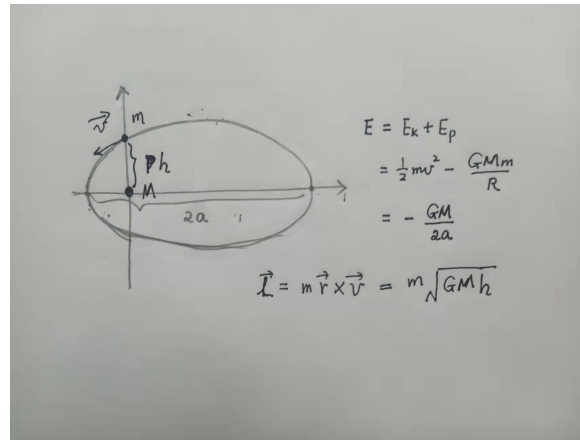 v⃗
m
h
M
2a
E = Eₖ + Eₚ
= ½mv² - GMm/R
= - GM/2a
L⃗ = m r⃗ × v⃗ = m√GMh